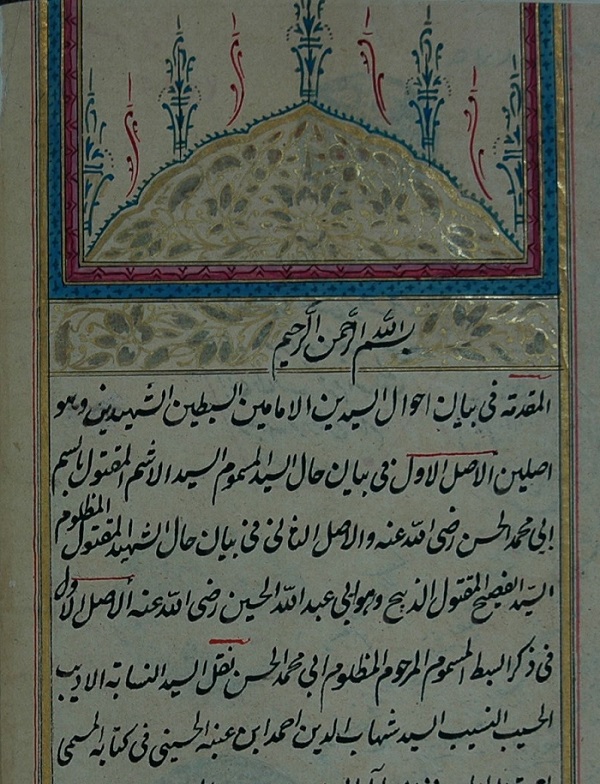 بسم الله الرحمن الرحيم
المقدمة فی بیان احوال السیدین الامامین السبطین الشهیدین وهو
اصلین الاصل الاول فی بیان حال السید المسموم السید الاشم المقتول بالسم
ابی محمد الحسن رضی الله عنه والاصل الثانی فی بیان حال الشهید المقتول المظلوم
السید الفصیح المقتول الذبیح وهو ابی عبد الله الحسین رضی الله عنه الاصل الاول
فی ذکر السبط المسموم المرحوم المظلوم ابی محمد الحسن نقل السید النسابة الادیب
الحسیب النسیب السید شهاب الدین احمد ابن عنبه الحسینی فی کتابه المسمی